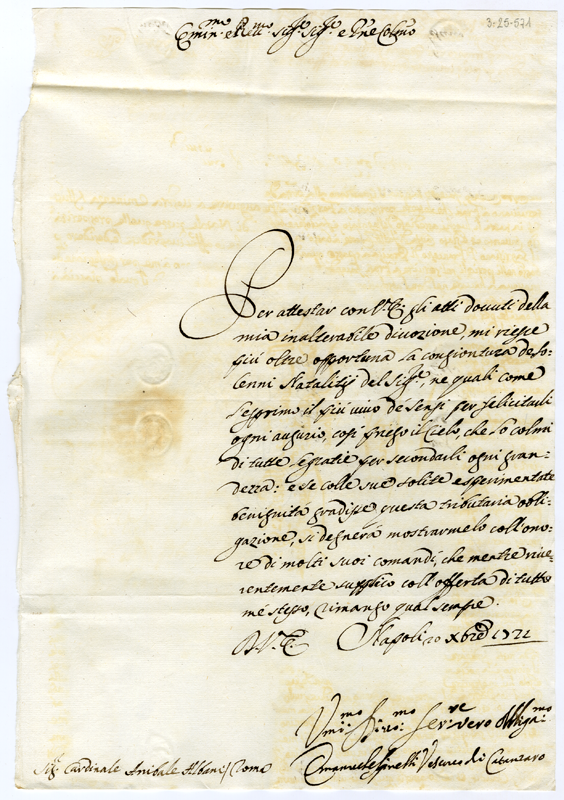 3-25-571
Emin.mo e Rev.mo Sig.re Sig.re e Pne Colmo
Per attestar con V.E. gli atti dovuti della
mia inalterabile divozione, mi riesce
più oltre opportuna la congiontura de so-
lenni Natalitij del Sig.re, ne quali come
l'esprimo il più vivo de sensi per felicitarli
ogni augurio, così priego il Cielo, che lo colmi
di tutte le gratie per secondarli ogni gran-
dezza: e se colle sue solite esperimentate
benignità gradisse questa tributaria obli-
gazione, si degnerà mostrarmelo coll'ono-
re di molti suoi comandi, che mentre rive-
rentemente supplico coll'offerta di tutto
me stesso, rimango qual sempre.
D.V.E. Napoli 20 Xbre 1721
Um.mo Div.mo Ser.re vero Obliga.mo
Emanuele Spinelli Vescovo di Catanzaro
Sig. Cardinale Anibale Albani / Roma